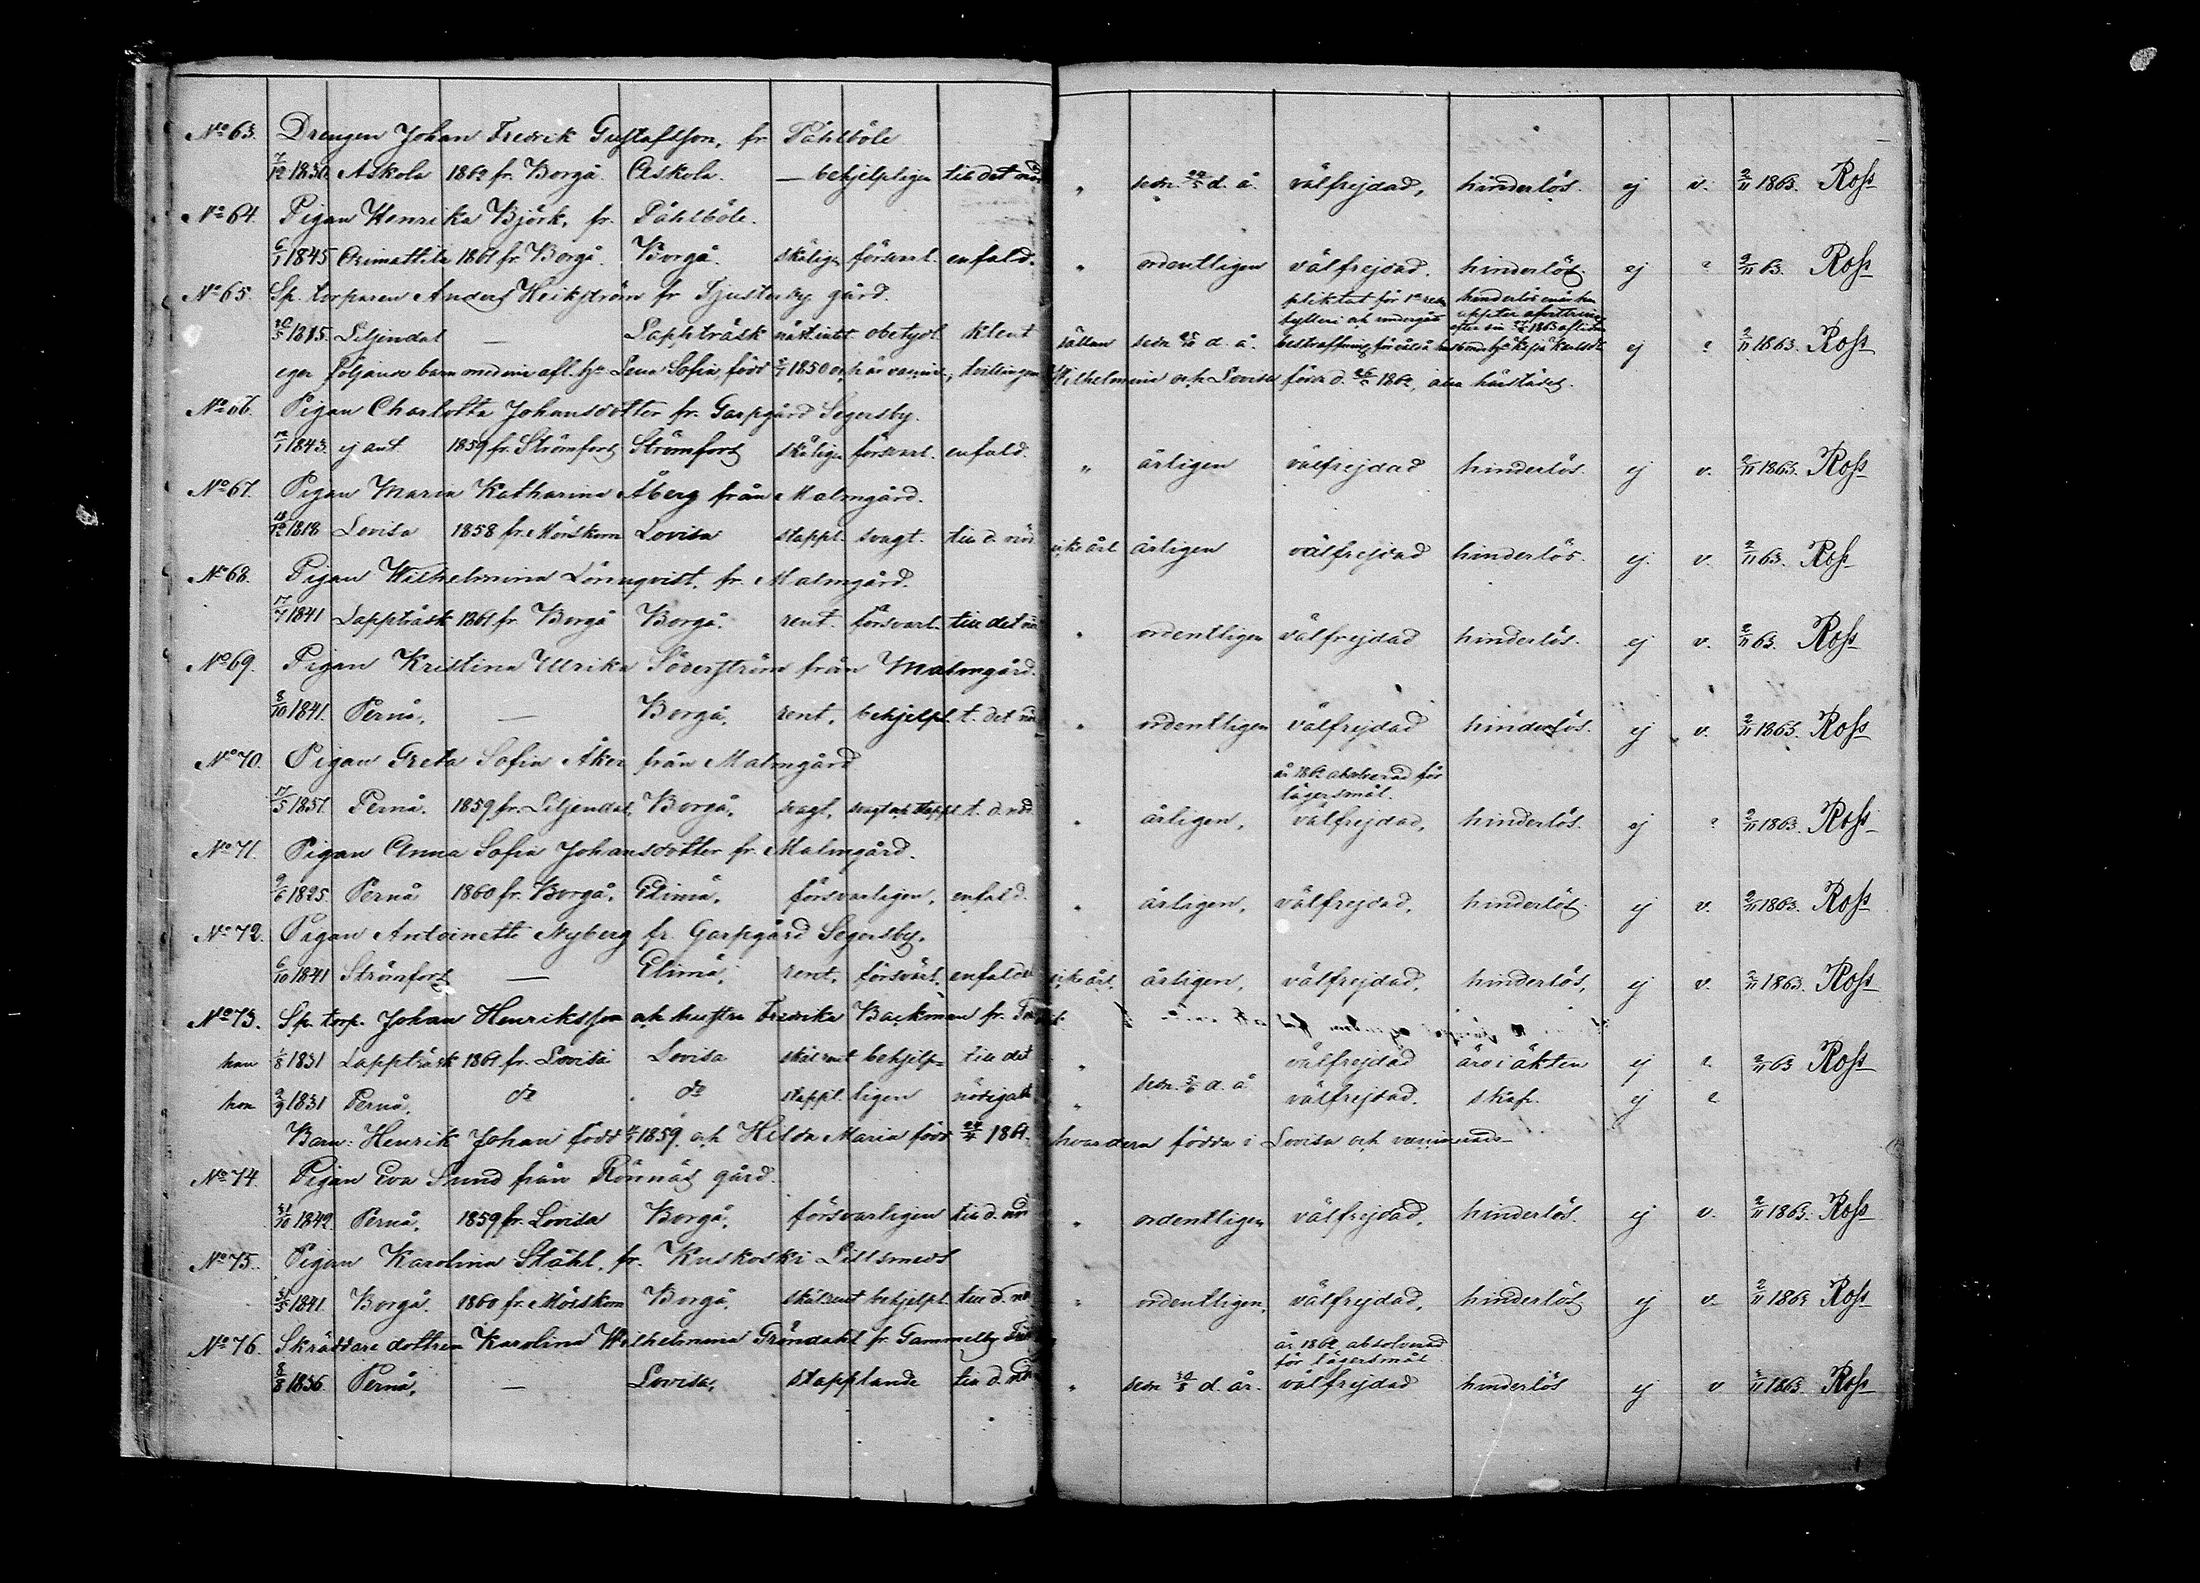 No 63. Drengen Johan Fredrik Gustafsson, fr Påhlböle
7/12 1830. Askola 1862 fr. Borgå. Askola. — behjelpligen till det nöd " sedn. d. å. välfrejdad, hinderlös. ej v. 2/11 1863. Ross
No 64. Pigan Henrika Björk, fr. Påhlböle.
6/1 1845 Orimattila 1861 fr. Borgå. Borgå. skälige försvarl. enfald. " ordentligen välfrejdad. hinderlös. ej 2/11 63. Ross
No 65. Sp. torparen Anders Heikström fr Tjusterby gård.
pliktat för 1a resn
1815. Liljendal — Lappträsk obetydl. klent sällan sedn d. å. bestraffning ej 2/11 1863. Ross
eger följande barn med sin afl. h. Lena Sofia, född 1850 och är vaccin., tvillingarne Wilhelmina och Lovisa födda d. 1862, alla härstädes.
No 66. Pigan Charlotta Johansdotter fr. Garpgård Segersby.
12/1 1843. ej ant 1859 fr. Strömfors Strömfors skälige försvarl. enfald. " årligen välfrejdad hinderlös. ej v. 2/11 1863. Ross
No 67. Pigan Maria Katharina Åberg från Malmgård.
18/12 1818 Lovisa 1858 fr. Mörskom Lovisa stappl. svagt. till d. nöd icke årl årligen välfrejdad hinderlös. ej. v. 2/11 63. Ross
No 68. Pigan Wilhelmina Lönnqvist, fr. Malmgård.
17/7 1841 Lappträsk 1861 fr. Borgå Borgå. rent. försvarl. till det nöd " ordentligen välfrejdad hinderlös. ej v. 2/11 63. Ross
No 69. Pigan Kristina Ulrika Söderström från Malmgård.
8/10 1841. Pernå, — Borgå, rent, behjelpl. t. det nöd " ordentligen välfrejdad hinderlös. ej v. 2/11 1863. Ross
No 70. Pigan Greta Sofia Åker från Malmgård
år 1862 absolverad för
lägersmål.
17/5 1837. Pernå. 1859 fr. Liljendal, Borgå, svagt, svagt och stappl t. d. nöd " årligen, välfrejdad, hinderlös. ej 2/11 1863. Ross
No 71. Pigan Anna Sofia Johansdotter fr. Malmgård.
9/6 1825. Pernå 1860 fr. Borgå. Elimä, försvarligen, enfald. " årligen, välfrejdad, hinderlös. ej v. 2/11 1863. Ross
No 72. Pigan Antoinette Nyberg fr. Garpgård Segersby.
6/10 1841 Strömfors — Elimä, rent, försvarl. enfald. icke årl. årligen, välfrejdad, hinderlös, ej v. 2/11 1863. Ross
No 73. Sp. torp. Johan Henriksson och hustru Fredrika Backman fr.
han 1/8 1831 Lappträsk 1861 fr. Lovisa Lovisa skäl rent behjelp= till det " välfrejdad äro i äkten ej 2/11 63 Ross
hon 2/9 1831 Pernå, do do stappl. ligen nödigaste " sedn. d. å välfrejdad. skap. ej
Barn: Henrik Johan född 1859 och Hilda Maria född 1861. hvardera födda i Lovisa och vaccinerade
No 74. Pigan Eva Sund från Rönnäs gård.
31/10 1842 Pernå, 1859 fr. Lovisa Borgå, försvarligen till d. nöd " ordentligen välfrejdad, hinderlös. ej v. 2/11 1863. Ross
No 75. Pigan Karolina Ståhl, fr. Kuskoski Lillsmeds
31/5 1841. Borgå. 1860 fr. Mörskom Borgå, skäl rent behjelpl. till d. nöd " ordentligen, välfrejdad, hinderlös ej v. 2/11 1863 Ross
No 76. Skräddare dottren Karolina Wilhelmina Gröndahl fr. Gammelby
år 1862 absolverad
för lägersmål
8/8 1836. Pernå, — Lovisa, stapplande till d. nöd " sedn d. år. välfrejdad hinderlös ej v 2/11 1863. Ross